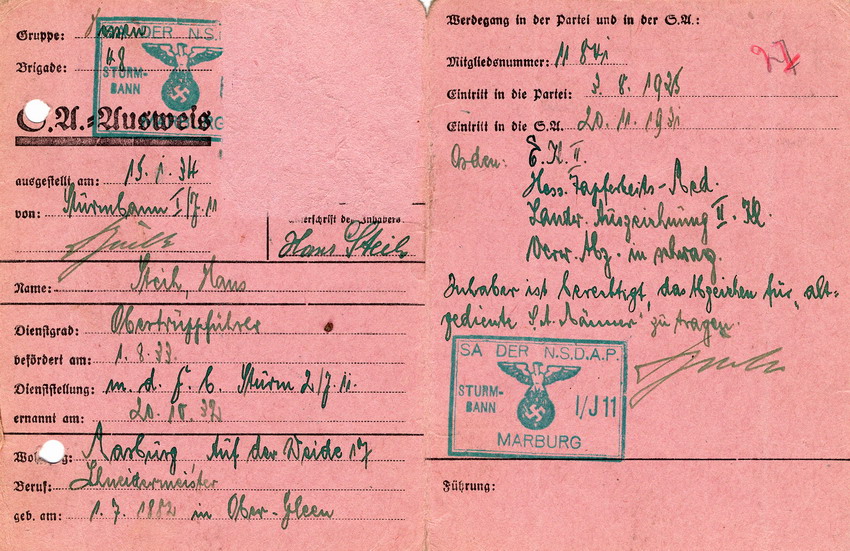 Gruppe: Hessen
Brigade: 48
SA DER N.S.
STURM-
BANN
MARBURG
S.A.=Ausweis
ausgestellt am: 15. 1. 34
von: Sturmbann I/J.11
erschrift des Inhabers
Hans Steih
Name: Steih, Hans
Dienstgrad: Obertruppführer
befördert am: 1. 8. 33
Dienststellung: m. d. F. b. Sturm 2/J 11.
ernannt am: 20. 10. 32
Wo g: Marburg Auf der Weide 17
Beruf: Schneidermeister
geb. am: 1. 7. 1882 in Ober-Gleen
Werdegang in der Partei und in der S.A.:
Mitgliedsnummer: 11 841
27
Eintritt in die Partei: 3. 8. 1925
Eintritt in die S.A. 20. 11. 1931
Orden: E. K. II.
Hess. Tapferkeits-Med.
Landw. Auszeichnung II. Kl.
Verw. Abz. in schwarz.
Inhaber ist berechtigt, das Abzeichen für „alt-
gediente S.A. Männer" zu tragen.
SA DER N.S.D.A.P.
STURM-
BANN
I/J11
MARBURG
Führung: